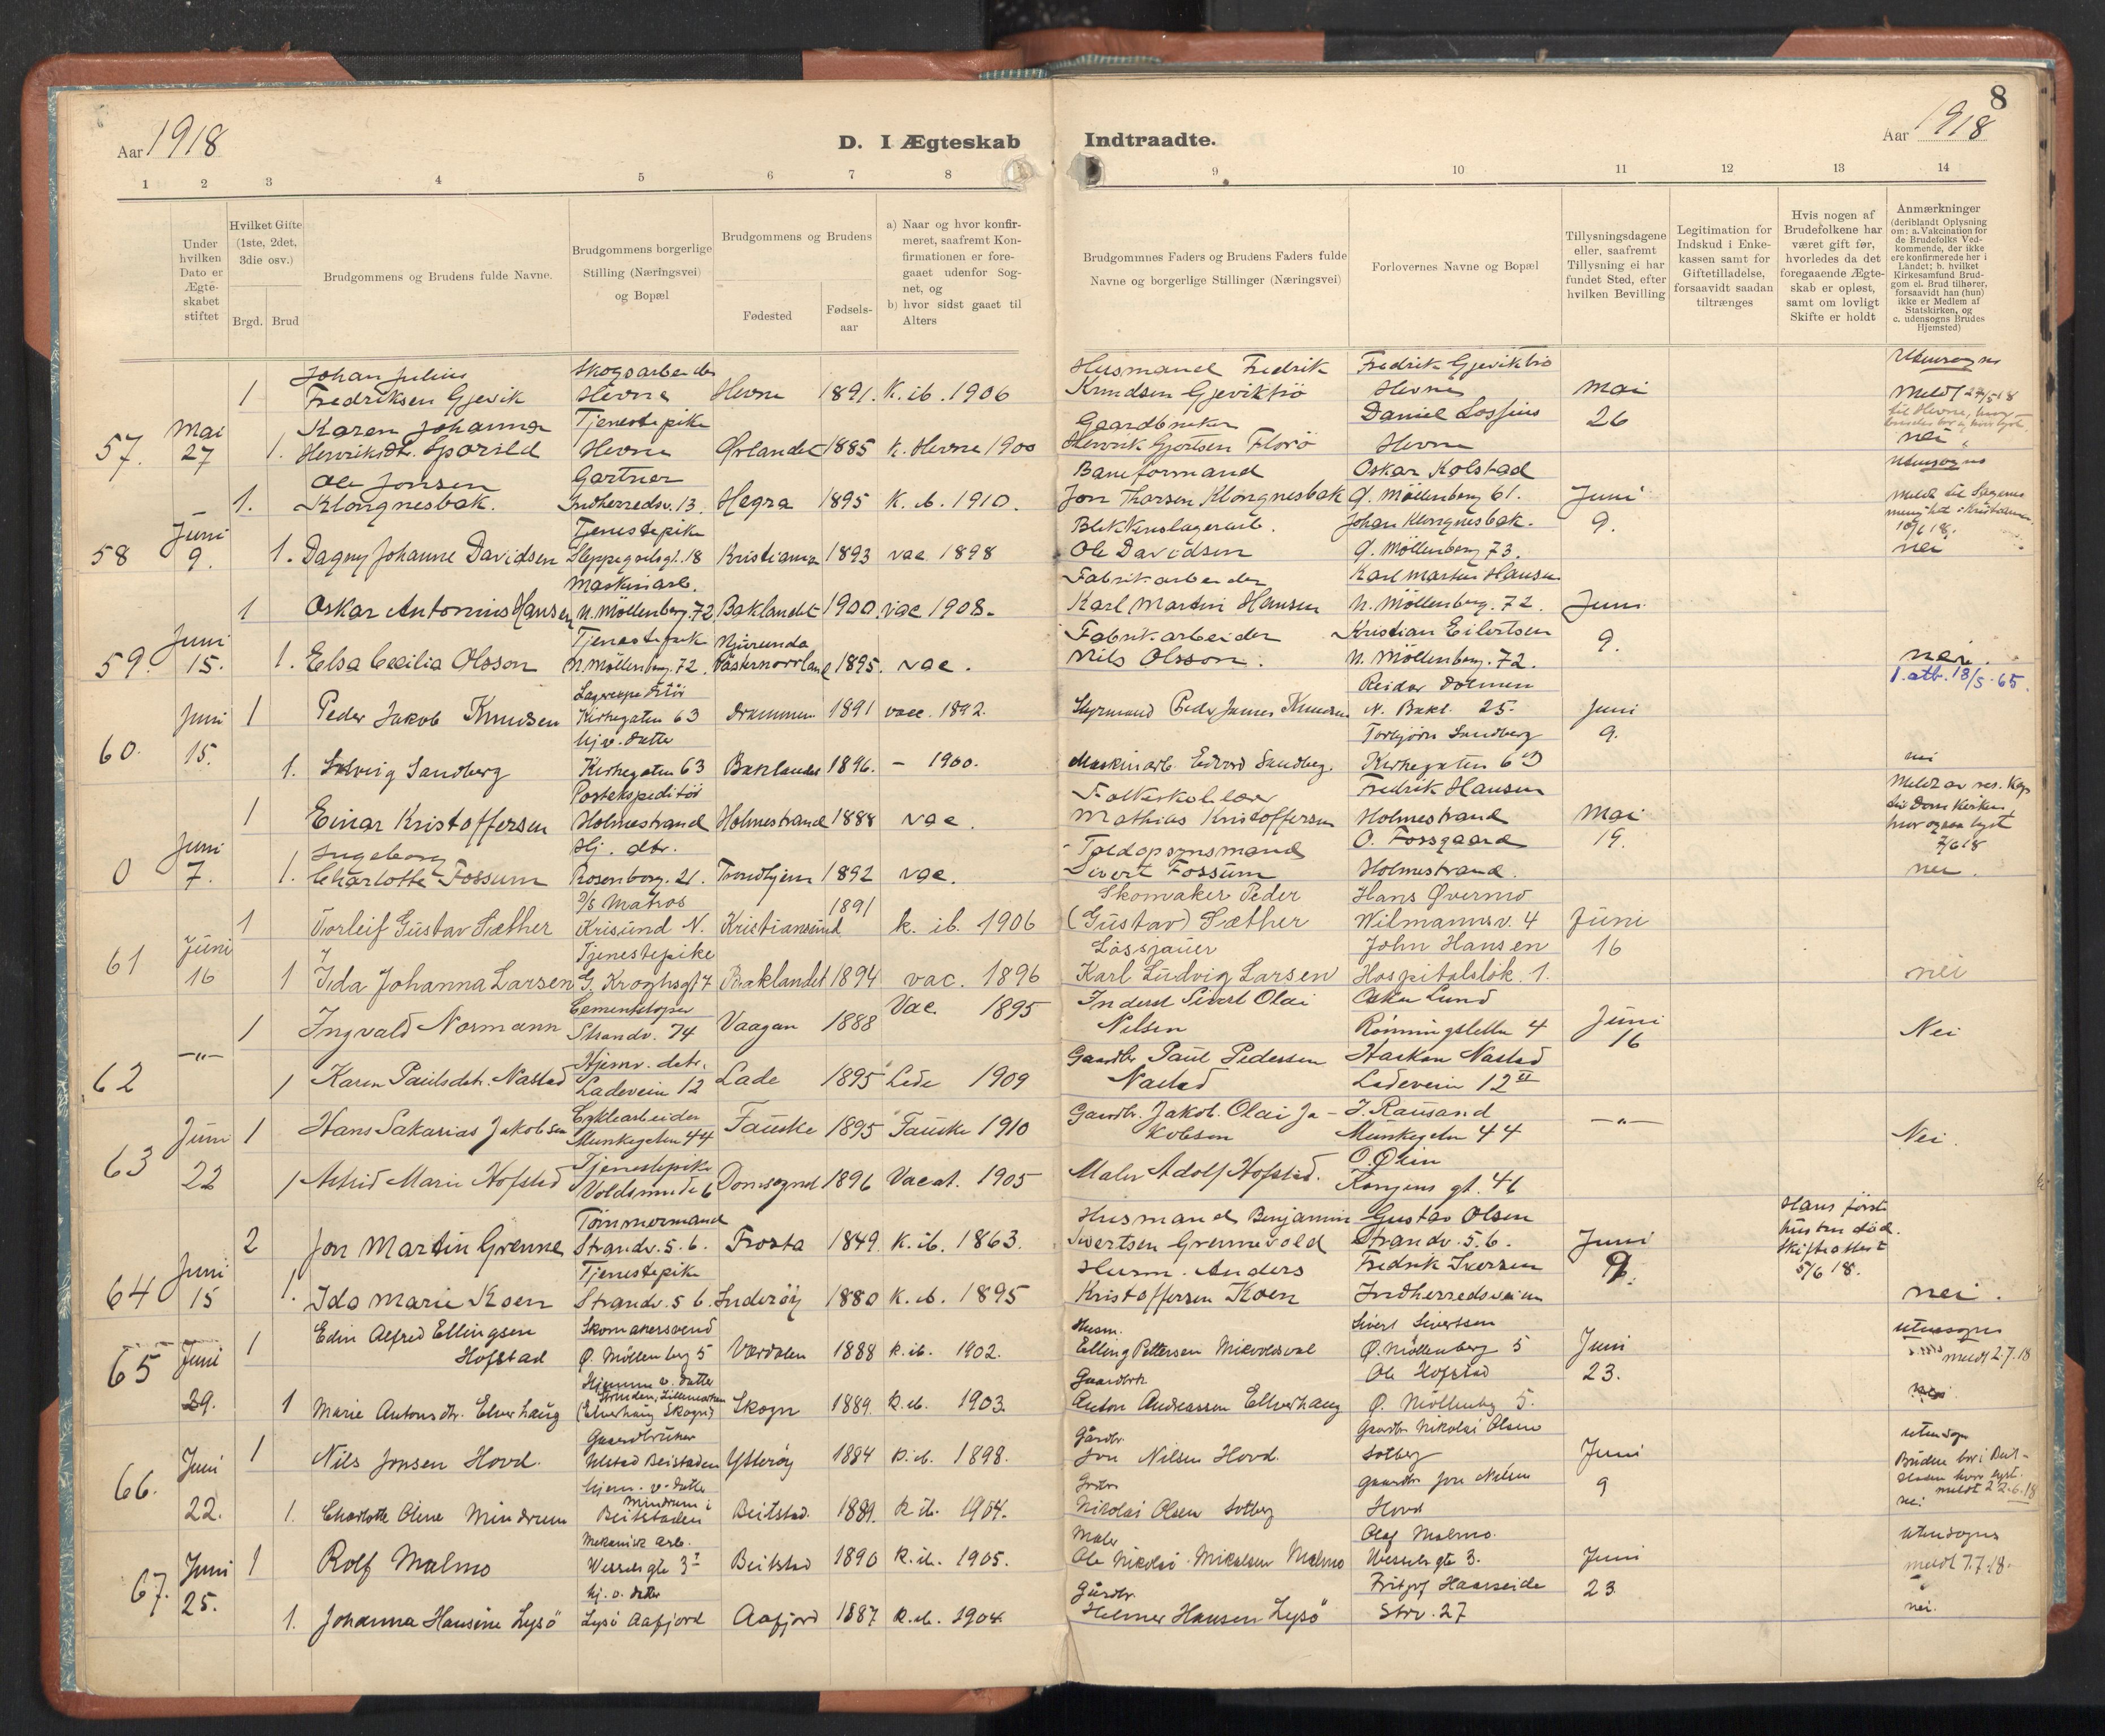 8
Aar 1918
D. I Ægteskab Indtraadte.
Aar 1918
1 2 3 4 5 6 7 8 9 10 11 12 13 14
Under hvilken Dato er Ægteskabet stiftet
Hvilket Gifte (1ste, 2det, 3die osv.)
Brgd. Brud
Brudgommens og Brudens fulde Navne.
Brudgommens borgerlige Stilling (Næringsvei) og Bopæl
Brudgommens og Brudens
Fødested
Fødselsaar
a) Naar og hvor konfirmeret, saafremt Konfirmationen er foregaaet udenfor Sognet, og
b) hvor sidst gaaet til Alters
Brudgommnes Faders og Brudens Faders fulde Navne og borgerlige Stillinger (Næringsvei)
Forlovernes Navne og Bopæl
Tillysningsdagene eller, saafremt Tillysning ei har fundet Sted, efter hvilken Bevilling
Legitimation for Indskud i Enkekassen samt for Giftetilladelse, forsaavidt saadan tiltrænges
Hvis nogen af Brudefolkene har været gift før, hvorledes da det foregaaende Ægteskab er opløst, samt om lovligt Skifte er holdt
Anmærkninger (deriblandt Oplysning om: a. Vakcination for de Brudefolks Vedkommende, der ikke ere konfirmerede her i Landet; b. hvilket Kirkesamfund Brudgom el. Brud tilhører, forsaavidt han (hun) ikke er Medlem af Statskirken, og c. udensogns Brudes Hjemsted)
57. Mai 27
1 Johan Julius Fredriksen Gjevik Skogsarbeider Hevne Hevne 1891. K. ib. 1906 Husmand Fredrik Knudsen Gjeviktrø Fredrik Gjeviktrø Hevne Mai 26 Utensogns Meldt
1. Karen Johanna Henriksdt. Sporild Tjenestepike Hevne Ørlandet 1885 k. Hevne 1900 Gaardbruker Henrik Gjertsen Florø Daniel Lossius Hevne nei
58 Juni 9.
1. Ole Jonsen Klongnesbak. Gartner Indherredsv. 13. Hegra 1895 K. ib. 1910. Baneformand Jon Tharsen Klongnesbak Oskar Kolstad Ø. Möllenberg 61. Juni 9. Utensogns
1. Dagny Johanne Davidsen Tjenestepike 18 Kristiania 1893 vac 1898 Blikkenslagerarb. Ole Davidsen Johan Klongnesbak. Ø. Möllenberg 73. nei
59. Juni 15.
1 Oskar Antonius Hansen Maskinarb. N. Möllenberg. 72 Baklandet 1900. vac 1908. Fabrikarbeider Karl Martin Hansen Karl Martin Hansen N. Möllenberg. 72. Juni 9.
1. Elsa Cecilia Olsson Tjenestepik N. Möllenberg. 72. Njurunda Västernorrland 1895. vac. Fabrikarbeider Nils Olsson. Kristian Eilertsen N. Möllenberg. 72. nei.
1. atb. 18/5-65.
60. Juni 15.
1 Peder Jakob Knudsen Kirkegaten 63 Drammen 1891 vacc. 1892. Styrmand Peder James Knudsen Reidar Dolmen N. Bakl. 25. Juni 9.
1. Solveig Sandberg hjv. datter Kirkegaten 63 Baklandet 1896. - 1900. Maskinarb. Edvard Sandberg. Torbjørn Sandberg Kirkegaten 63 nei
0 Juni 7.
1 Einar Kristoffersen Postekspeditör Holmestrand Holmestrand 1888 vac. Folkeskolelærer Mathias Kristoffersen Fredrik Hansen Holmestrand Mai 19. Meldt av res. Kap. til Domkirken, hvor ogsaa lyst 7/6 18
1. Ingeborg Charlotte Fossum Hj. dtr. Rosenborg. 21. Trondhjem 1892 vac. Toldopsynsmand Sivert Fossum O. Fossgaard Holmestrand. nei.
61 Juni 16
1 Torleif Gustav Sæther D/S Matros Krisund N. Kristiansund 1891 k. ib. 1906 Skomaker Peder (Gustav) Sæther Hans Øvermo Wilmannsv. 4 Juni 16
1 Ida Johanna Larsen Tjenestepike G. Kroghsgt 7 Baklandet 1894 vac. 1896 Løssjauer Karl Ludvig Larsen John Hansen Hospitalsløk. 1. nei
62 -"-
1 Ingvald Normann Cementstøper Strandv. 74 Vaagan 1888 Vac. 1895 Inderst Sivert Olai Nilsen Oskar Lund Rönningsletta 4 Juni 16 Nei
1 Karen Paulsdtr. Nastad Hjemv. datr. Ladeveien 12 Lade 1895 Lade 1909 Gaardbr Paul Pedersen Nastad Haakon Nastad Ladeveien 12 II
63 Juni 22
1 Hans Sakarias Jakobsen Cyklearbeider Munkegaten 44 Fauske 1895 Fauske 1910 Gaardbr. Jakob Olai Jakobsen J. Rausand Munkegaten 44 -"- Nei.
1 Astrid Marie Hofstad Tjenestepike Voldsminde 6 Domsognet 1896 Vacat. 1905 Maler Adolf Hofstad. O. Øien Kongens gt. 46
64 Juni 15
2 Jon Martin Grenne Tömmermand Strandv. 56. Frosta 1849. K. ib. 1863. Husmand Benjamin Sivertsen Grennevold Gustav Olsen Strandv. 56. Juni 9. Hans första hustru död. Skifteattest 5/6 18.
1. Ida Marie Koen Tjenestepike Strandv. 56. Inderöy 1880 K. ib. 1895 Husm. Anders Kristoffersen Koen Fredrik Iversen Indherredsveien nei.
65 Juni 29.
1 Edin Alfred Ellingsen Hofstad Skomakersvend Ø. Möllenberg 5 Værdalen 1888 k. ib. 1902. Husm. Elling Pettersen Sivert Sivertsen Ø. Möllenberg 5 Juni 23. utensogns meldt 2.7.18
1 Marie Antonsdtr. Elverhaug Hjemme v. datter (Elverhaug Skogn) Skogn 1889. k. ib. 1903. Gaardbr. Anton Andreassen Elverhaug Ole Hofstad Ø. Möllenberg 5. nei
66. Juni 22.
1 Nils Jonsen Hovd. Gaardbruker Beitstaden Ytteröy 1884 k. ib. 1898. Gårdbr. Jon Nilsen Hovd. Gaardbr Nikolai Olsen Solberg Juni 9 utensogn Bruden bor i Beitstaden hvor lyst. meldt 22.6.18
1. Charlotte Oline Mindrum hjem. v. datter Mindrum i Beitstaden Beitstad. 1889. k. ib. 1904. Nikolai Olsen Solberg gaardbr Jon Nilsen Hovd nei
67. Juni 25.
1 Rolf Malmo Mekanisk arb. Wessels gte 3 I Beitstad 1890 k. ib. 1905. Maler Ole Nikolai Mikalsen Malmo Olaf Malmo. Wessels gte 3. Juni 23 utensogns meldt 7.7.18.
1. Johanna Hansine Lysö hj. v. datter Lysö Aafjord Aafjord 1887 k. ib. 1904. Gårdbr. Helmer Hansen Lysö Fritjof Haarseide Strv. 27 nei.